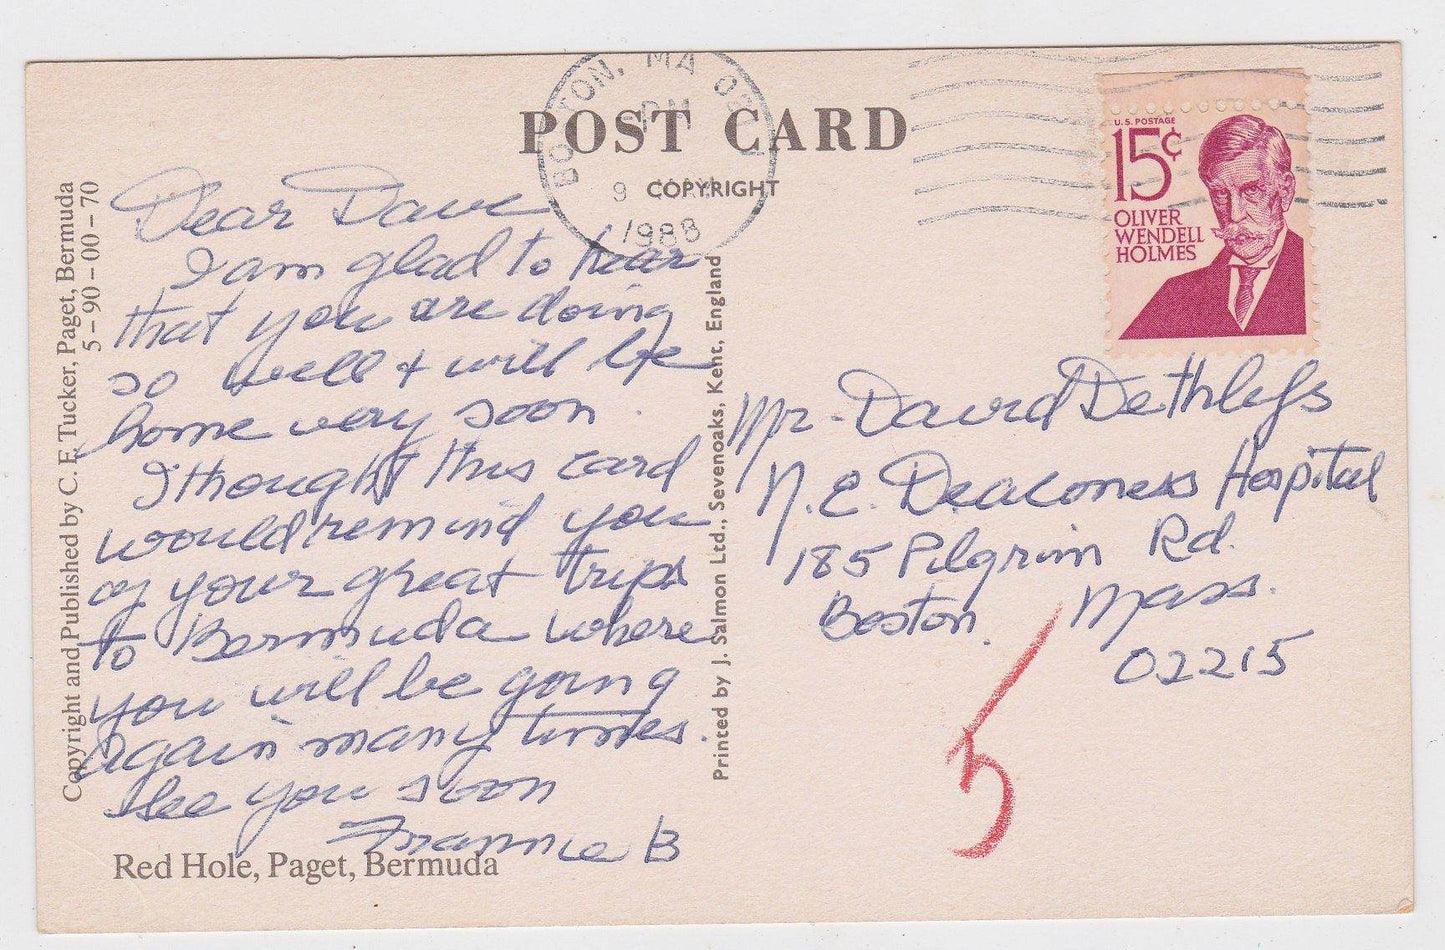 POST CARD
COPYRIGHT
BOSTON, MA
PM
9
1988
U.S. POSTAGE
15¢
OLIVER
WENDELL
HOLMES
Copyright and Published by C. F. Tucker, Paget, Bermuda
5 – 90 – 00 – 70
Dear Dave
I am glad to hear
that you are doing
so well + will be
home very soon.
I thought this card
would remind you
of your great trips
to Bermuda where
you will be going
again many times.
See you soon
Frannie B
Red Hole, Paget, Bermuda
Printed by J. Salmon Ltd., Sevenoaks, Kent, England
Mr. David Dethlefs
N. E. Deaconess Hospital
185 Pilgrim Rd.
Boston, Mass.
02215
5